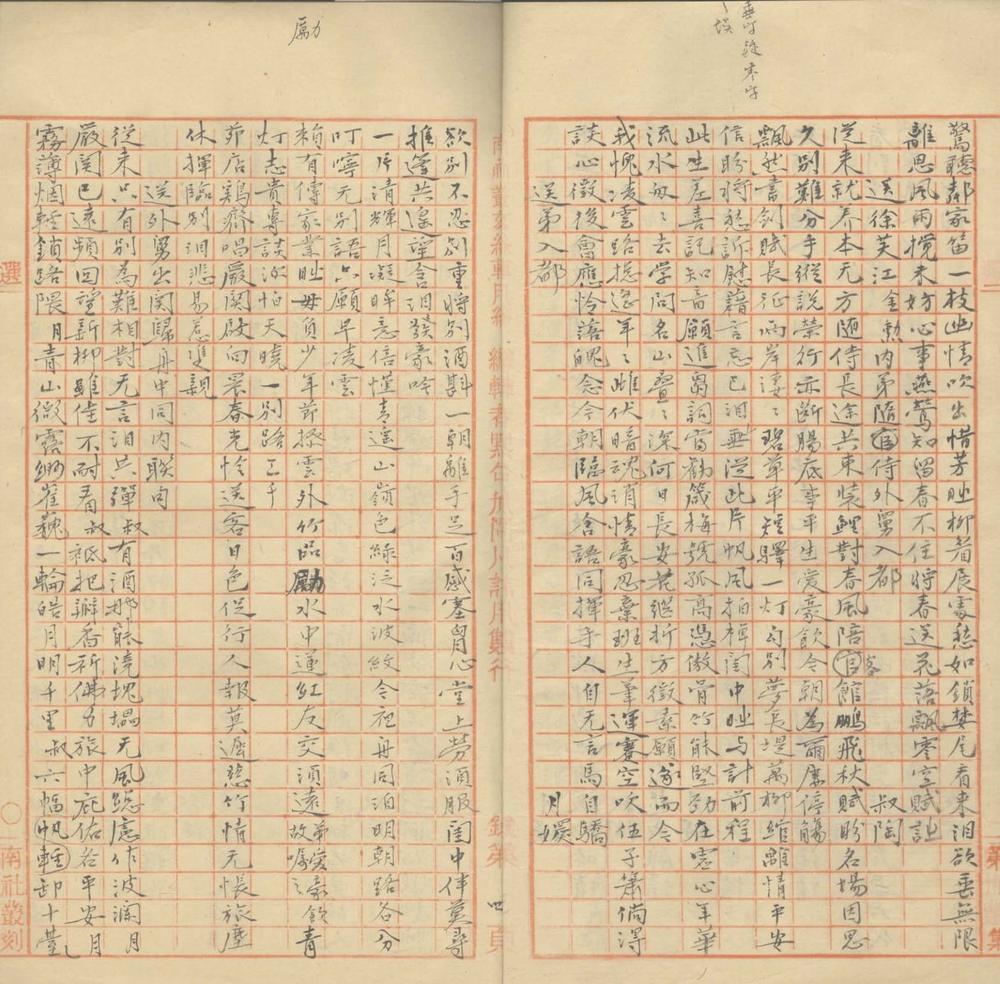 垂
驚聽鄰家笛一枝幽情吹出惜芳時柳眉展處愁如鎖婪尾看來淚欲垂無限
離思風雨攪未妨心事燕鶯知留春不住將春送花落飄零空賦詩
送徐芙江金勲內弟隨宦侍外舅入都 叔陶
從來就养本无方随侍長途共束装鯉對春風陪官館鵬飛秋賦盼名塲因思
客
久别難分手縱説榮行亦斷腸底事平生愛豪飲今朝為爾废停觴
飄然書劍賦長征兩岸凄〻碧草平短驛一灯勾别夢長堤萬柳綰離情平安
信盼將愁訴慰藉言忘已淚無從此片帆風拍棹閨中时与計前程
此生差喜記知音願進芻詞當勸箴梅號孤高憑傲骨竹能堅劲在虚心年華
流水每〻去学问名山疊〻深何日長安花继折方徵素願遂而今
我愧凌雲路挹遥年〻雌伏暗魂消情豪忍棄班生筆運蹇空吹伍子簫倘得
談心徵後會應怜語魄念今朝臨風含語同揮手人自无言馬自驕
送弟入都 月嬡
南社叢刻 第 四 頁
勵
欲别不忍别重将别酒斟一朝離手足百感塞胷心堂上勞須服閨中伴莫尋
推篷共遥望含淚發豪吟
一片清輝月凝眸意倍懂青遥山嶺色綠泛水波紋今夜舟同泊明朝路各分
叮嚀无别語只願早凌雲
頼有傳家業时毋負少年節撡雲外竹品勵水中蓮紅友交須遠弟愛豪飲故嘱之青
灯志貴專談深怕天曉一别路三千
茆店鷄齊唱嚴関啟向晨春光怜送客日色促行人報莫遲愁竹情无悵旅塵
休揮臨别淚悲易惹雙親
送外舅出関歸舟中同内聯句
從来只有别為難相對无言淚共彈叔有酒那能澆塊壘无風總慮作波瀾月
嚴関已遠頻回望新柳雖佳不耐看叔祗把瓣香祈佛力旅中庇佑谷平安月
霧薄烟輕鎖路隈月青山微露绑崔巍一輪皓月明千里叔六幅帆輕卸十臺
選
南社叢刻